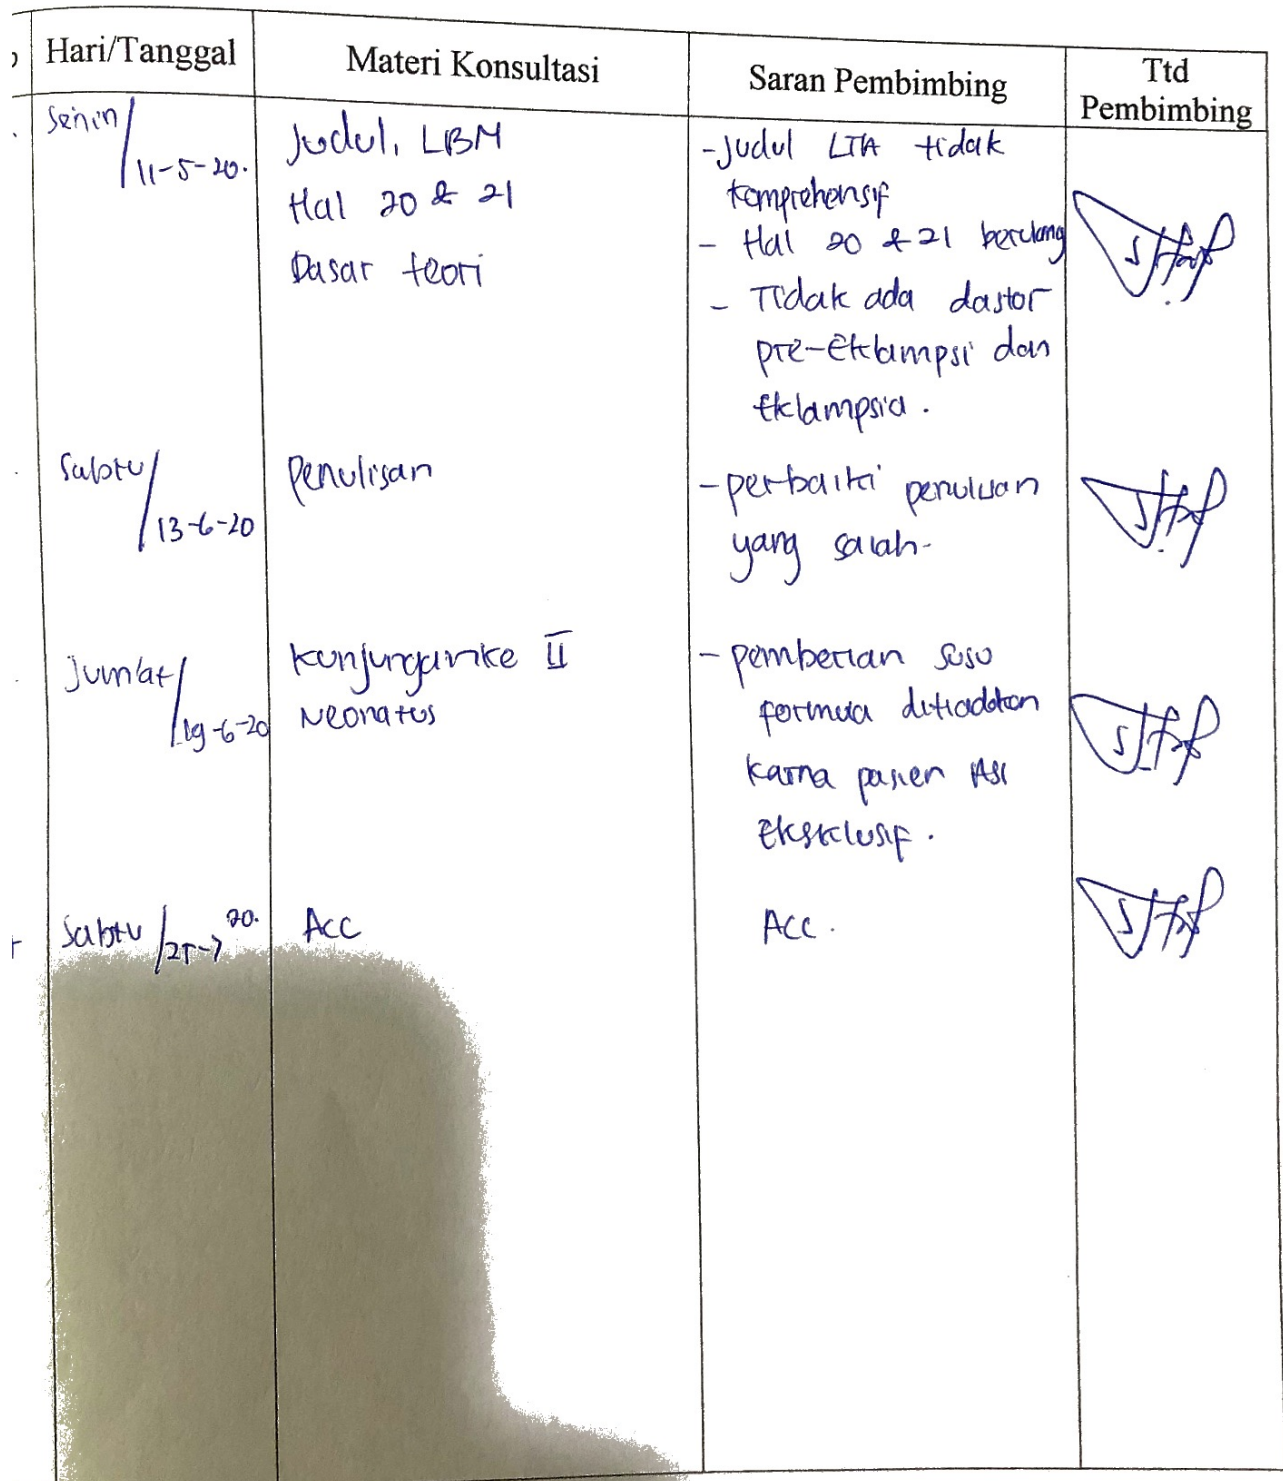 Hari/Tanggal
Materi Konsultasi
Saran Pembimbing
Ttd
Pembimbing
Senin/
11-5-20.
Judul, LBM
Hal 20 & 21
Dasar teori
- Judul LTA tidak
komprehensif
- Hal 20 & 21 berulang
- Tidak ada dastor
pre-Eklampsi dan
Eklampsia.
Sabtu/
13-6-20
Penulisan
- perbaiki penulisan
yang salah-
Jum'at/
19-6-20
Kunjungan ke II
Neonatus
- pemberian susu
formula ditiadakan
karna pasien ASI
Eksklusif.
Sabtu/25-7 20.
Acc
Acc.